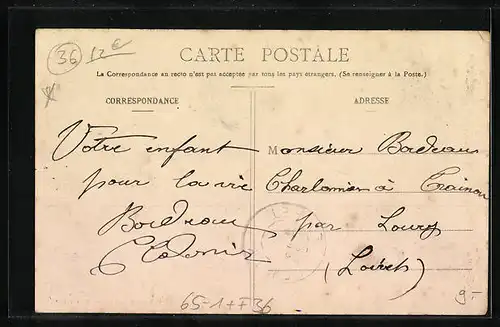 36 12€
CARTE POSTALE
La Correspondance au recto n'est pas acceptée par tous les pays étrangers. (Se renseigner à la Poste.)
CORRESPONDANCE
Votre enfant
pour la vie
Bordeau
ADRESSE
Monsieur Bordeau
à Trainou
par Loury
(Loiret)
65-1++36
9.-